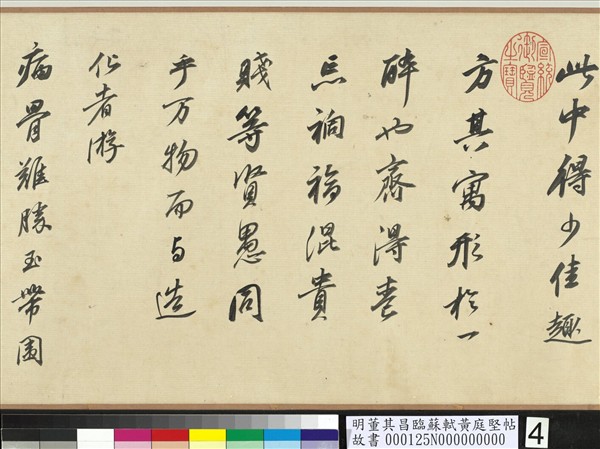 此中得少佳趣
方其寓形於一
醉也齊得喪
忘禍福混貴
賤等賢愚同
乎万物而与造
化者游
病骨難勝玉帶圍
宣統御覽之寶
明董其昌臨蘇軾黃庭堅帖
故書 000125N000000000
4